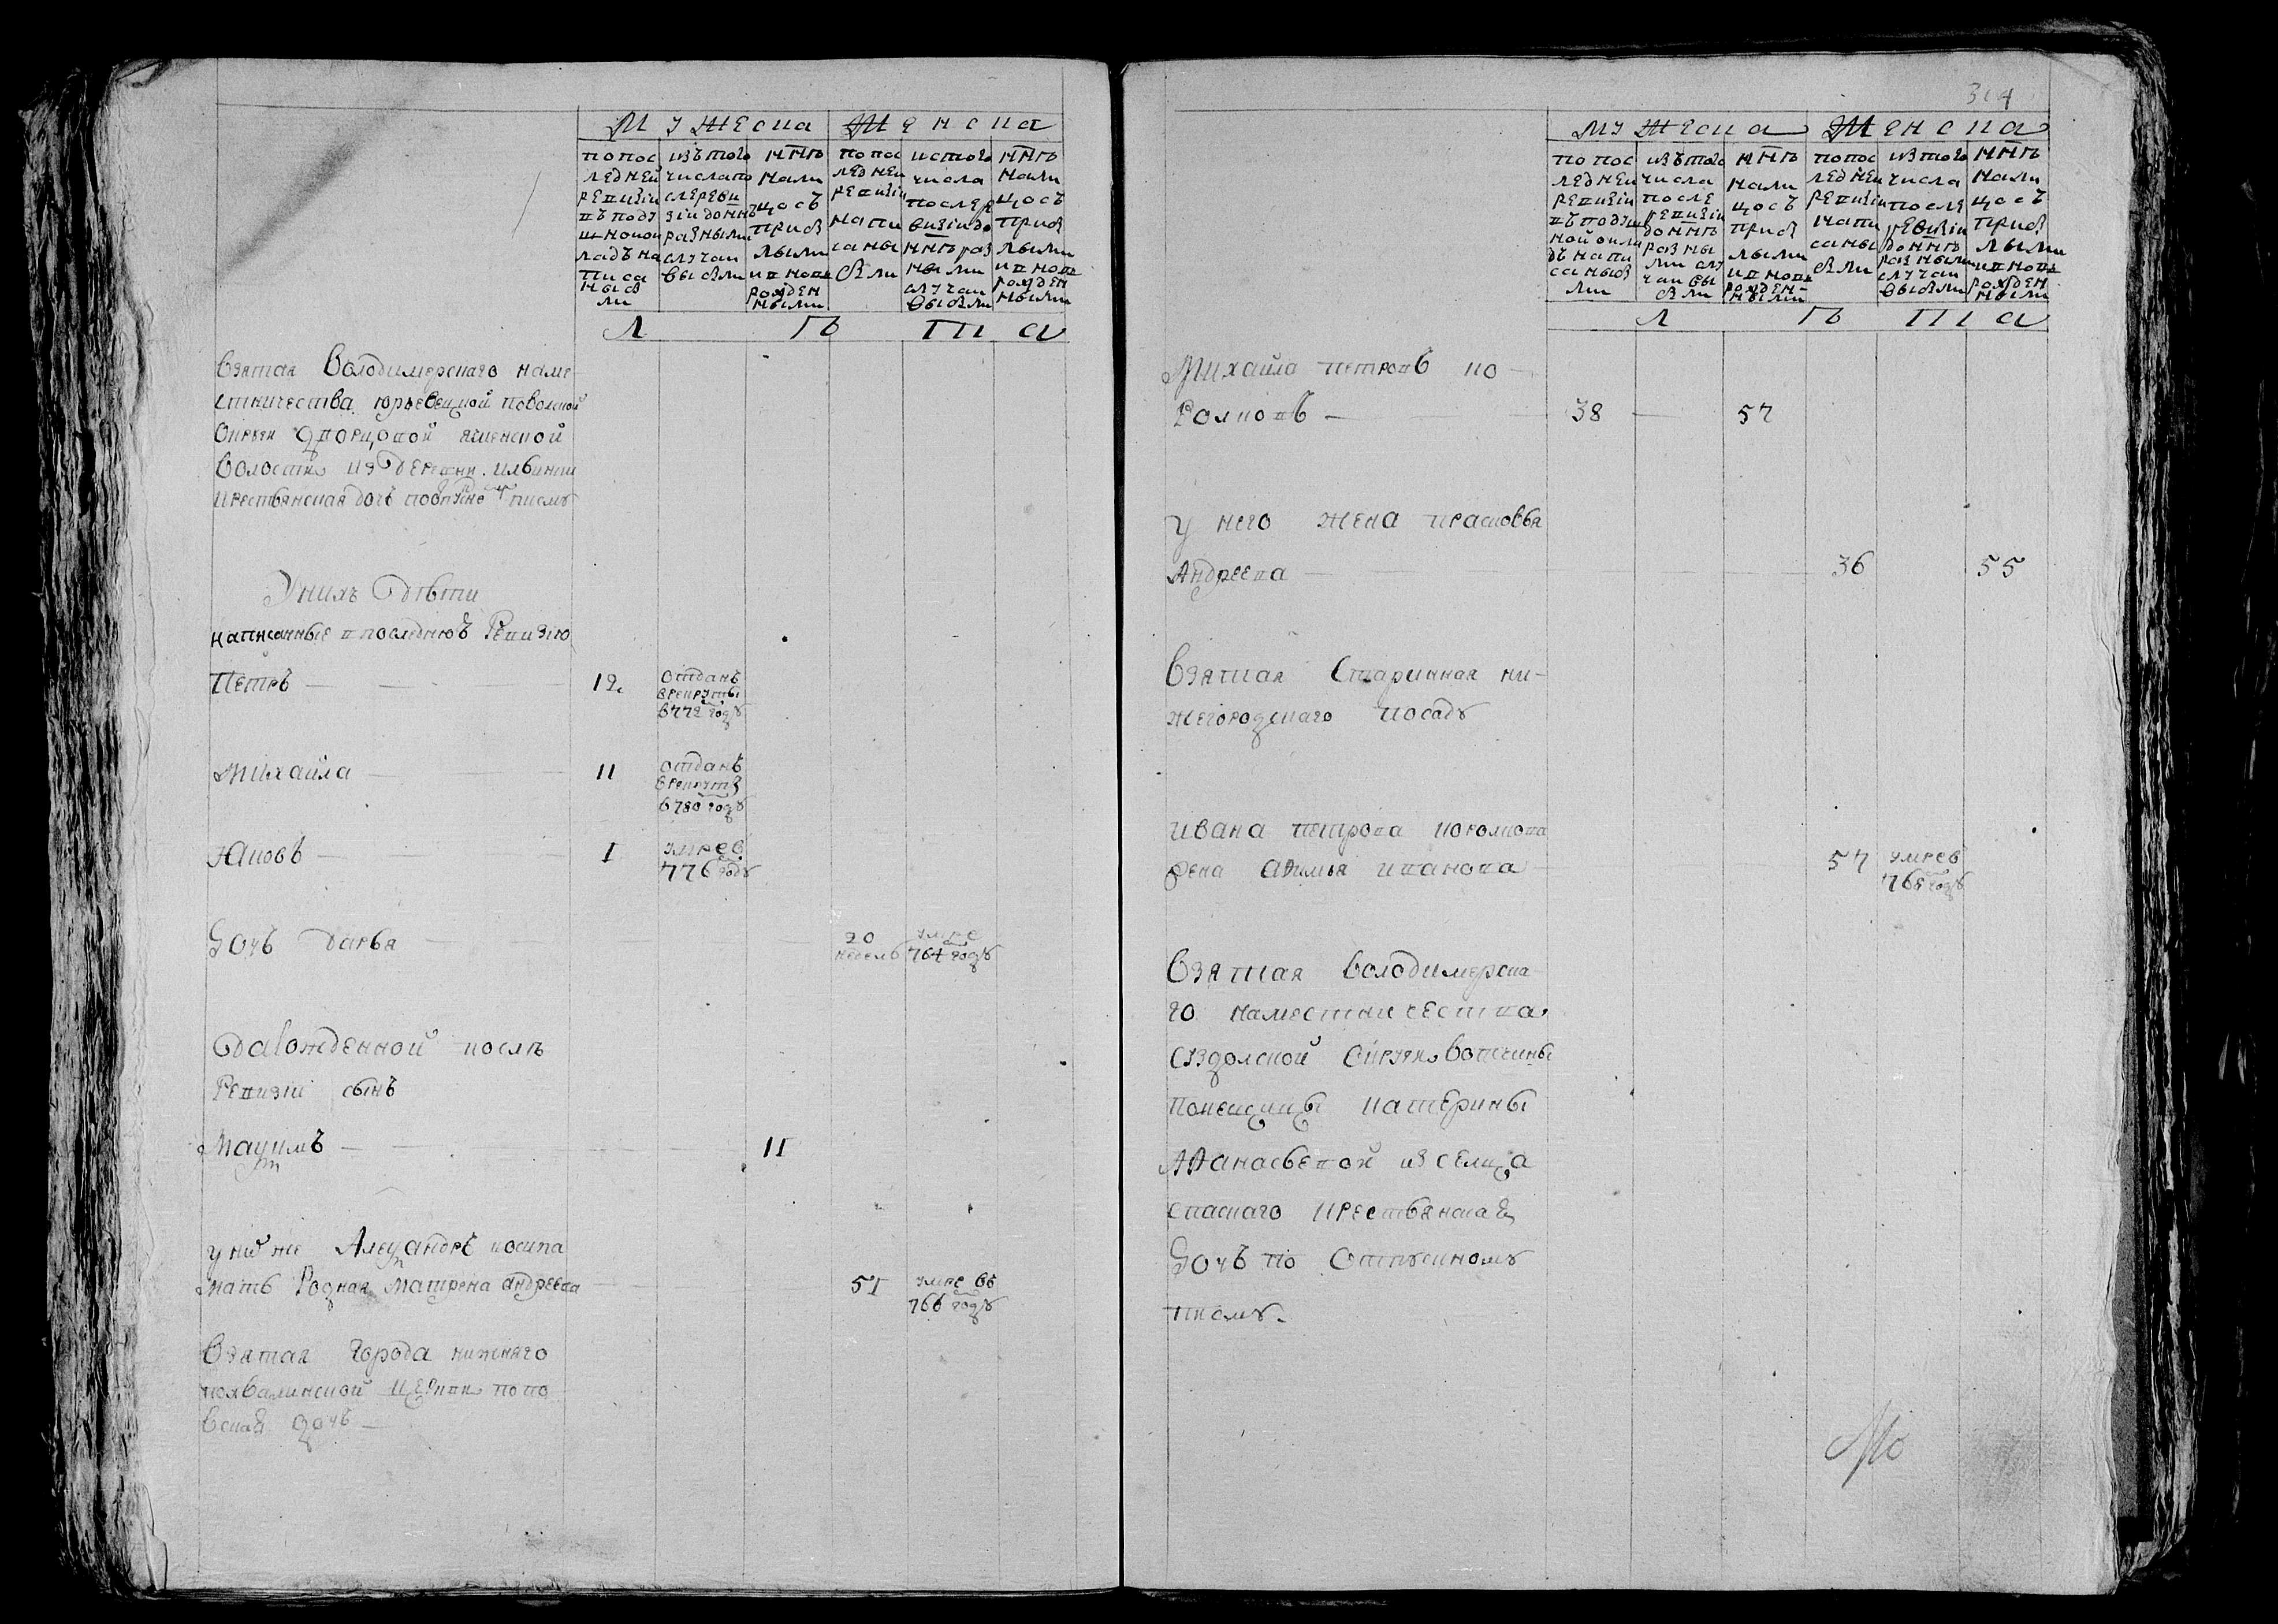 Мужеска
Женска
попос
ледней
ревизiи
въ поду
шной ок
ладъ на
писа
ны бы
ли
изъ того
числа по
сле реви
зiи до ннѣ
разными
случаи
выбыли
ннѣ
нали
цосъ
прибы
лыми
и вновь
рожден
ными
попос
ледней
ревизiи
напи
саны
были
ис того
числа
послѣ ре
визiи до
ннѣ раз
ными
случаи
выбыли
ннѣ
нали
цосъ
прибы
лыми
и вновь
рожден
ными
Лѣта
взятая володимерскаго наме
стничества юрьевецкой поволской
округи дворцовой
волости из деревни
крестьянская дочъ по писму
У нихъ дѣти
написанные в последнюъ ревизию
Петръ 12 отданъ
в рекруты
в 772 годꙋ
Михайла 11 отданъ
в рекруты
в 780 годꙋ
Яковъ 1 умре в
776 годꙋ
Дочъ дарья 20 недель умре 764 годꙋ
рожденной послѣ
ревизiи сынъ
Макѵимъ 11
у ни же Алеѯандръ
мать родная матрена андреева 51 умре въ
766 годꙋ
взятая города нижняго
похвалинской церкви попо
вская дочъ
314
Мужеска
Женска
попос
ледней
ревизiи
въ подуш
ной окла
дъ напи
саны бы
ли
изъ того
числа
после
ревизiи
до ннѣ
разны
ми слу
чаи вы
были
ннѣ
нали
цосъ
прибы
лыми
и вновь
рожден
ными
попос
ледней
ревизiи
напи
саны
были
из того
числа
после
ревизiи
до ннѣ
разными
случаи
выбыли
ннѣ
нали
цосъ
прибы
лыми
и вновь
рожден
ными
Лѣта
Михайла петровъ ко
ролковъ 38 57
у него жена прасковья
Андреева 36 55
взятая старинная ни
жегородскаго посадꙋ
ивана петрова королкова
жена афимья иванова 57 умре в
768 годꙋ
взятая володимерска
го наместничества
суздолской округи вотчины
помещицы катерины
Афанасьевой из селца
спаскаго крестьянская
дочъ по отпꙋскномꙋ
писмꙋ